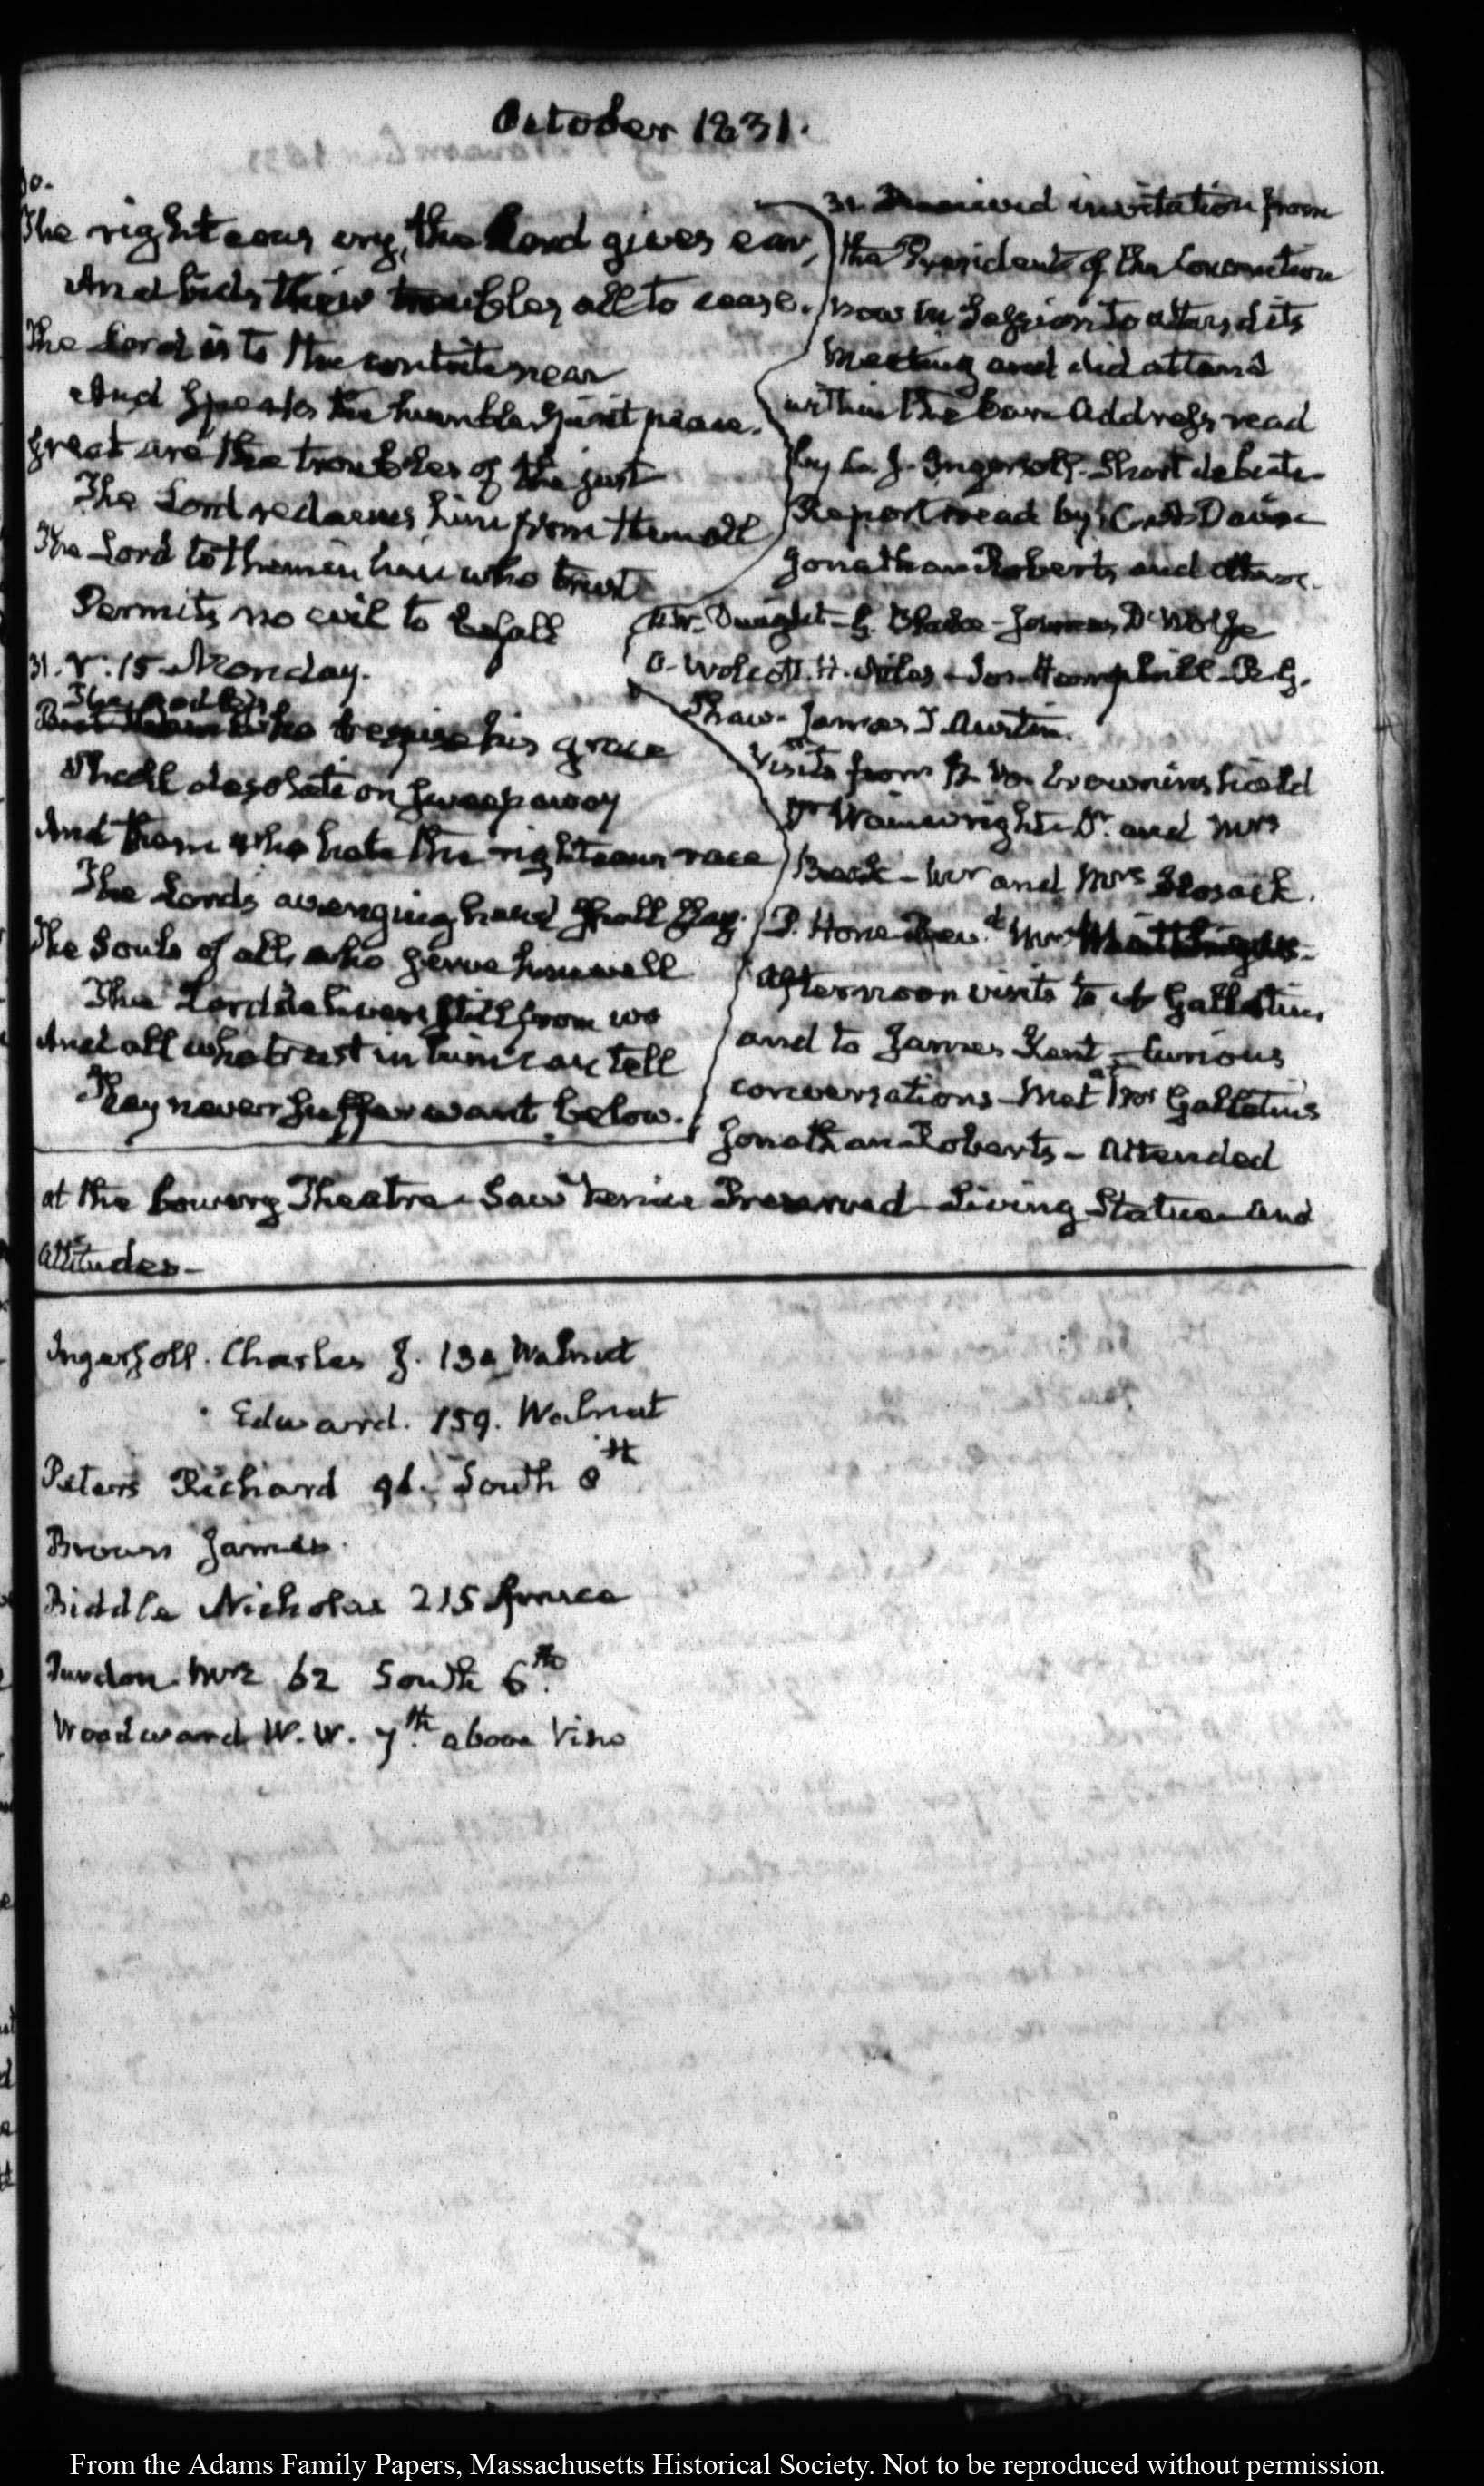 October 1831.
30.
The righteous cry, the Lord gives ear,
And bids their troubles all to cease.
The Lord is to the contrite near
And speaks the humble spirit peace.
Great are the troubles of the just
The Lord redeems him from them all
The Lord to them in him who trust
Permits no evil to befall
31. V. 15 Monday.
The godless
who despise his grace
Shall desolation sweep away
And them who hate the righteous race
The Lords avenging hand shall slay.
The Souls of all, who serve him well
The Lord delivers still from wo
And all who trust in him can tell
They never suffer want below.
31. Received invitation from
the President of the Convention
now in Session to attend its
meeting and did attend
within the bar. Address read
by C. J. Ingersoll. Short debate
Report read by Davis
Jonathan Roberts and others.
Dwight - G. Blake - James D'Wolfe
O. Wolcott. H. Niles - Jos. Hemphill - R. G.
Shaw - James T. Austin.
Visits from Crowninshield
Dr Wainwright - Dr. and Mrs
Beck - Mr and Mrs Hosack.
P. Hone
Afternoon visits to A Gallatin,
and to James Kent - Curious
conversations - Met at Mr Gallatins
Jonathan Roberts - Attended
at the Bowery Theatre - Saw Venice Preserved - Living Statue and
Attitudes -
Ingersoll. Charles J. 130 Walnut
Edward. 159. Walnut
Peters Richard 91. South 8th
Brown James.
Biddle Nicholas 215 Spruce
Purdon. Mrs 62 South 6th.
Woodward W. W. 7th. above Vine
From the Adams Family Papers, Massachusetts Historical Society. Not to be reproduced without permission.